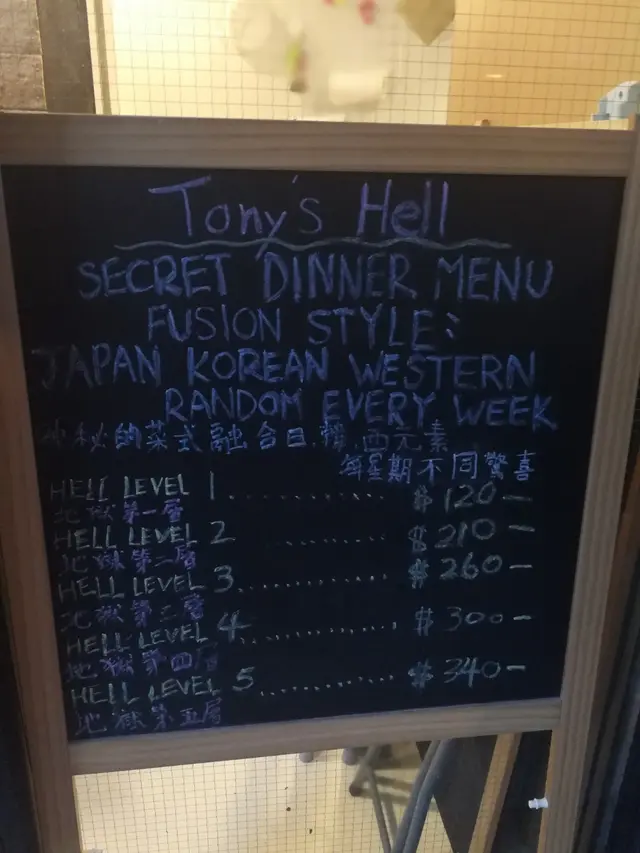 Tony's Hell
SECRET DINNER MENU
FUSION STYLE:
JAPAN KOREAN WESTERN
RANDOM EVERY WEEK
神秘的菜式融合日,韓,西元素
每星期不同驚喜
HELL LEVEL 1 ................ $120-
地獄第一層
HELL LEVEL 2 ............ $210-
地獄第二層
HELL LEVEL 3 ................ $260-
地獄第三層
HELL LEVEL 4 ................ $300-
地獄第四層
HELL LEVEL 5 ................ $340-
地獄第五層